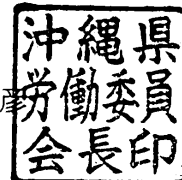 沖縄県
労働委員
会長印